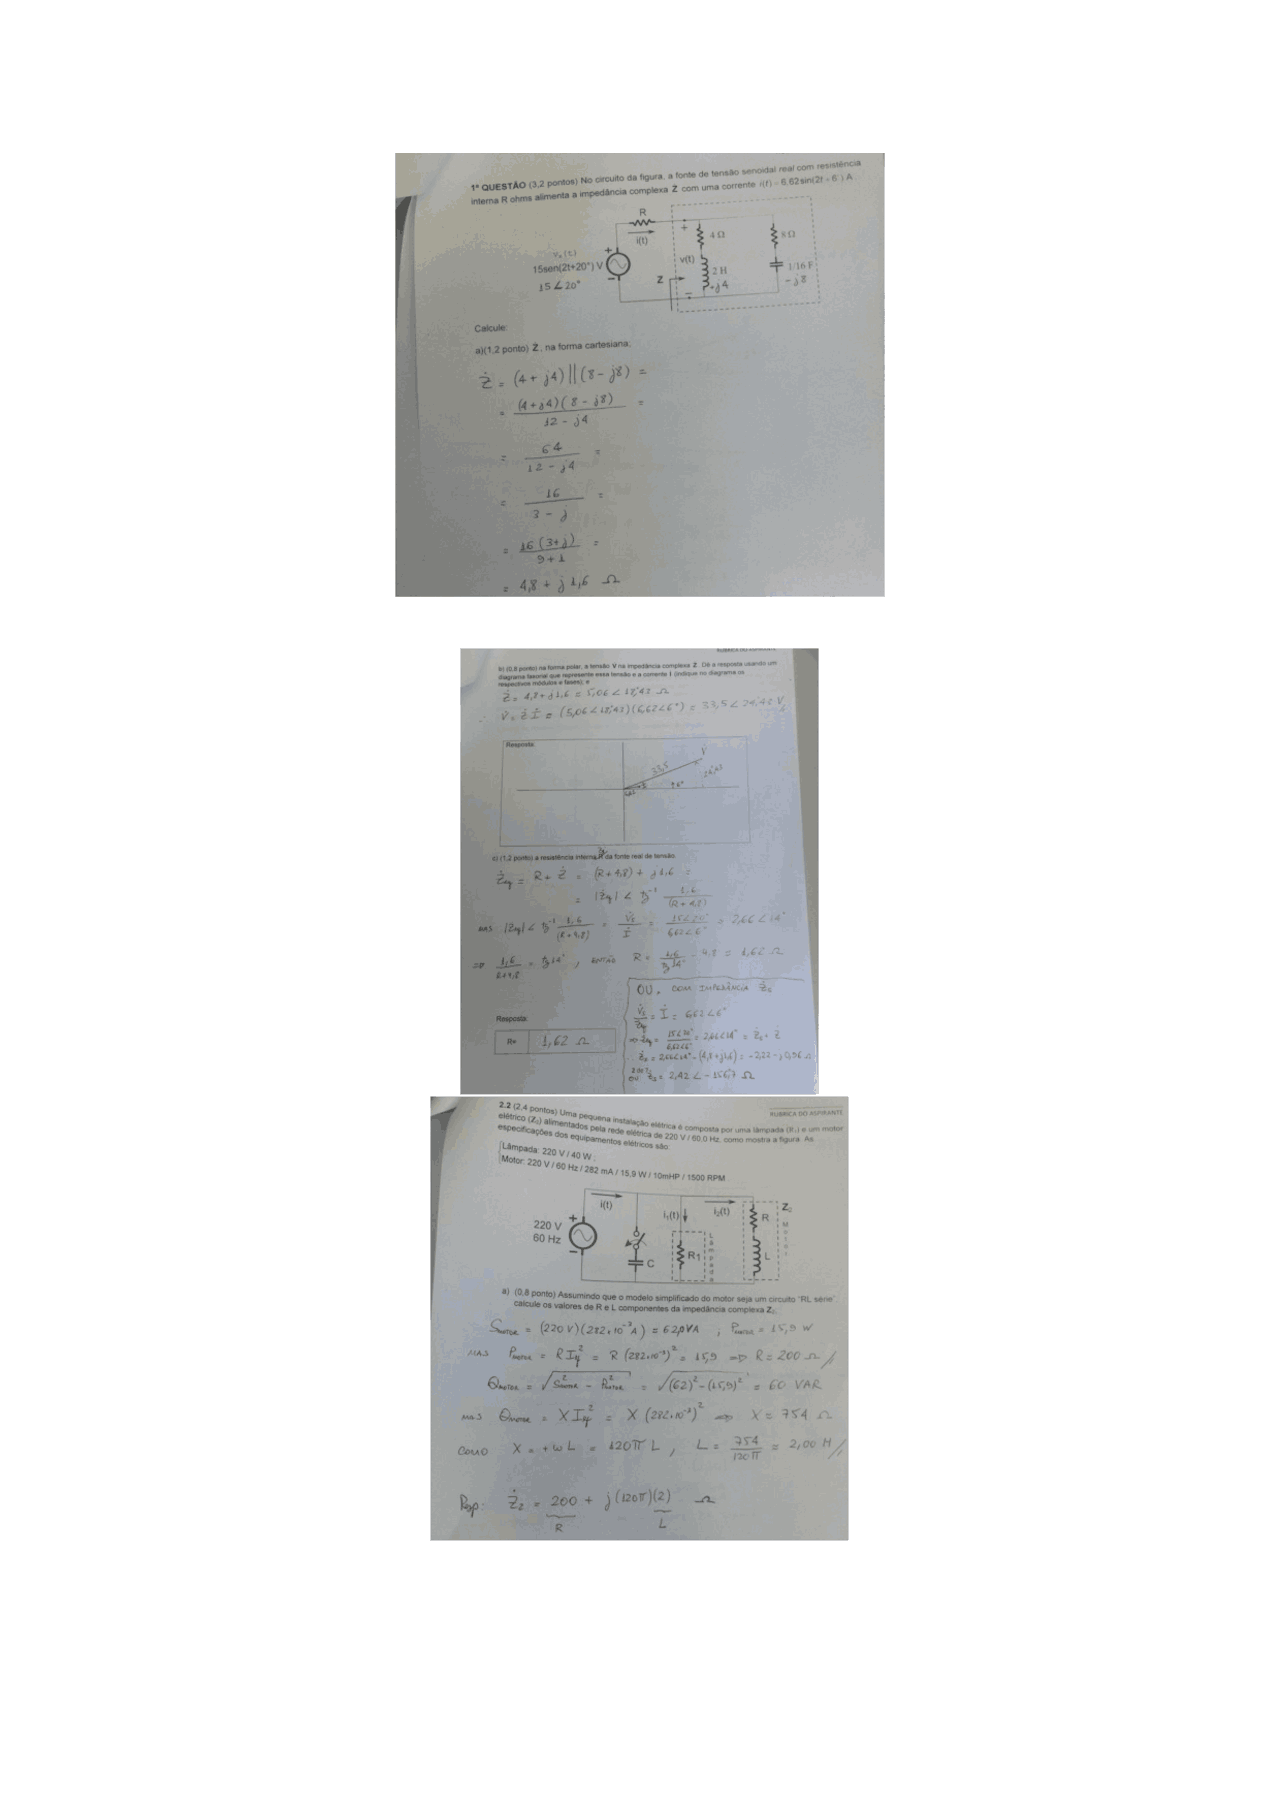 1ª QUESTÃO (3,2 pontos) No circuito da figura, a fonte de tensão senoidal real com resistência
interna R ohms alimenta a impedância complexa Z com uma corrente i(t) = 6,62sin(2t + 6°) A
R
i(t)
+
4 Ω
8 Ω
v(t)
2 H
+j4
1/16 F
-j8
Z
vs(t)
15sen(2t+20°) V
15∠20°
Calcule:
a)(1,2 ponto) Z, na forma cartesiana;
Ż = (4 + j4) || (8 - j8) =
= (4+j4)(8 - j8) / 12 - j4 =
= 64 / 12 - j4 =
= 16 / 3 - j =
= 16(3+j) / 9+1 =
= 4,8 + j1,6 Ω
RUBRICA DO ASPIRANTE
b) (0,8 ponto) na forma polar, a tensão V na impedância complexa Z. Dê a resposta usando um
diagrama fasorial que represente essa tensão e a corrente I (indique no diagrama os
respectivos módulos e fases); e
Ż = 4,8 + j1,6 = 5,06 ∠18,43 Ω
∴ V̇ = Ż İ = (5,06 ∠18,43)(6,62∠6°) = 33,5 ∠ 24,43 V
Resposta:
33,5
V̇
24,43
6°
c) (1,2 ponto) a resistência interna R da fonte real de tensão.
Żeq = R + Ż = (R+4,8) + j1,6 =
= |Żeq| ∠ tg⁻¹ 1,6 / (R+4,8)
MAS |Zeq| ∠ tg⁻¹ 1,6 / (R+4,8) = V̇s / İ = 15∠20° / 6,62∠6° = 2,66 ∠14°
⇒ 1,6 / R+4,8 = tg 14°, ENTÃO R = 1,6 / tg 14° - 4,8 = 1,62 Ω
Resposta:
R= 1,62 Ω
OU, COM IMPEDÂNCIA Żs
V̇s / Żeq = İ = 6,62∠6°
⇒ Żeq = 15∠20° / 6,62∠6° = 2,66∠14° = Żs + Ż
Żs = 2,66∠14° - (4,8+j1,6) = -2,22 - j0,96 Ω
2 de 7
OU Żs = 2,42 ∠ -156,7 Ω
2.2 (2,4 pontos) Uma pequena instalação elétrica é composta por uma lâmpada (R1) e um motor
RUBRICA DO ASPIRANTE
elétrico (Z2) alimentados pela rede elétrica de 220 V / 60,0 Hz, como mostra a figura. As
especificações dos equipamentos elétricos são:
Lâmpada: 220 V / 40 W
Motor: 220 V / 60 Hz / 282 mA / 15,9 W / 10mHP / 1500 RPM
i(t)
i1(t)
i2(t)
220 V
60 Hz
C
R1
Lâmpada
R
L
Z2
Motor
a) (0,8 ponto) Assumindo que o modelo simplificado do motor seja um circuito "RL série",
calcule os valores de R e L componentes da impedância complexa Z2.
SMOTOR = (220 V)(282×10⁻³A) = 62,0VA ; PMOTOR = 15,9 W
MAS PMOTOR = R Ief² = R (282×10⁻³)² = 15,9 ⇒ R = 200 Ω //
QMOTOR = √S²MOTOR - P²MOTOR = √(62)² - (15,9)² = 60 VAR
MAS QMOTOR = X Ief² = X (282×10⁻³)² ⇒ X = 754 Ω
COMO X = +ωL = 120π L , L = 754 / 120π = 2,00 H //
Resp: Ż2 = 200 + j(120π)(2) Ω
R
L